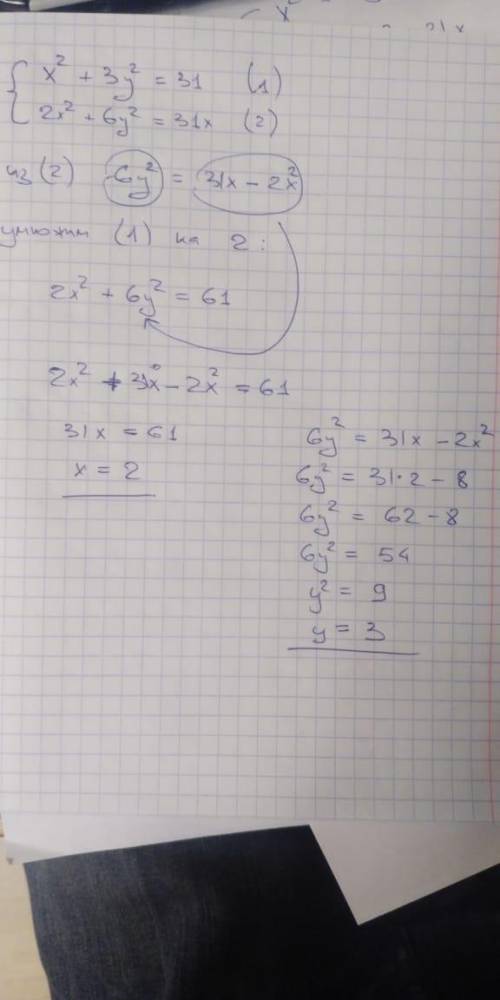 x² + 3y² = 31 (1)
2x² + 6y² = 31x (2)
из (2) 6y² = 31x - 2x²
умножим (1) на 2:
2x² + 6y² = 61
2x² + 31x - 2x² = 61
31x = 61
x = 2
6y² = 31x - 2x²
6y² = 31·2 - 8
6y² = 62 - 8
6y² = 54
y² = 9
y = 3